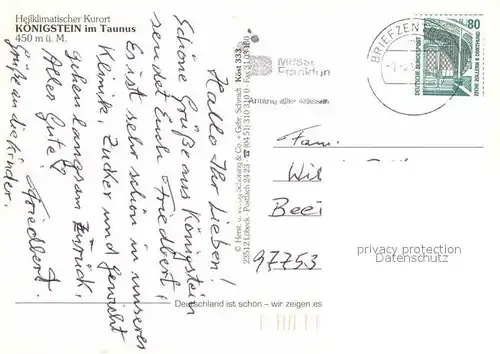 Heilklimatischer Kurort
KÖNIGSTEIN im Taunus
450 m ü. M.
Hallo Ihr Lieben!
Schöne Grüße aus Königstein
sendet Euch Friedbert!
Es ist sehr schön in unserer
Klinik, Zucker und Gewicht
gehen langsam zurück.
Alles Gute! Friedbert.
Grüße an die Kinder.
© Herst. u. Verlag Schöning & Co. + Gebr. Schmidt
23512 Lübeck · Postfach 24 23 ☎ (04 51) 310 310
Köst 333
Messe
Frankfurt
BRIEFZEN
80
DEUTSCHE BUNDESPOST
ZECHE ZOLLERN II DORTMUND
Fam.
Wil
Beei
97753
privacy protection
Datenschutz
Deutschland ist schön – wir zeigen es